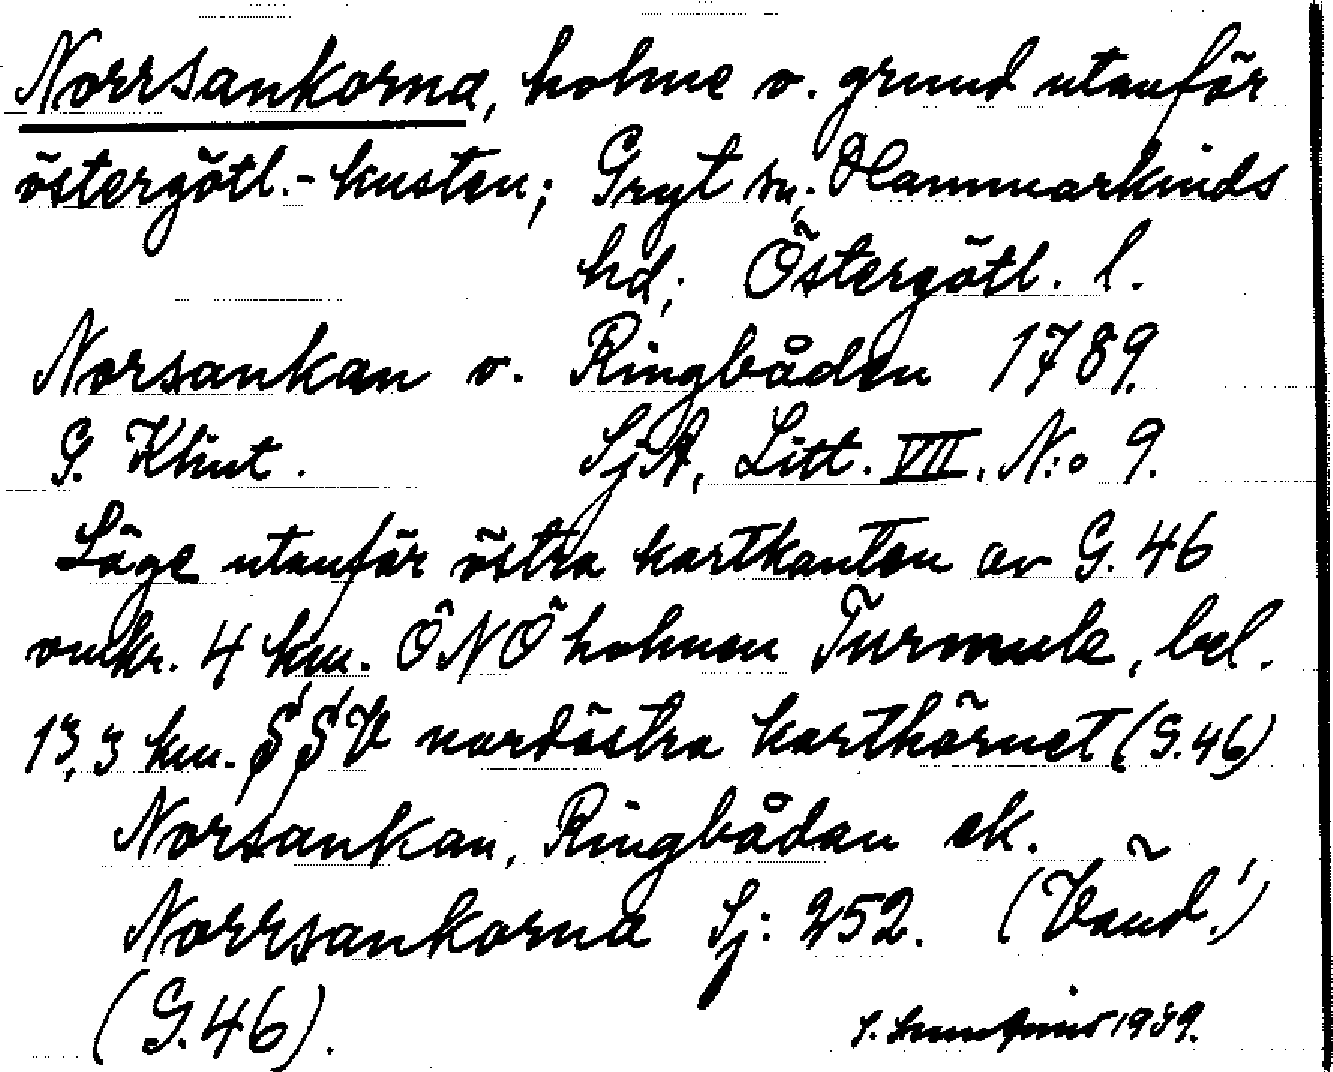 Norrsankorna, holme o. grund utanför
östergötl.-kusten; Gryt sn; Hammarkinds
hd; Östergötl. l.
Norsankan o. Ringbåden 1789.
G. Klint. SjA, Litt. VII. N:o 9.
Läge utanför östra kartkanten av G.46
omkr. 4 km. ÖNÖ holmen Turmule, bel.
13,3 km. SSV nordöstra karthörnet (G.46)
Norsankan, Ringbådan ek.
Norrsankorna Sj: 252. (Vänd!)
(G.46).
1939.